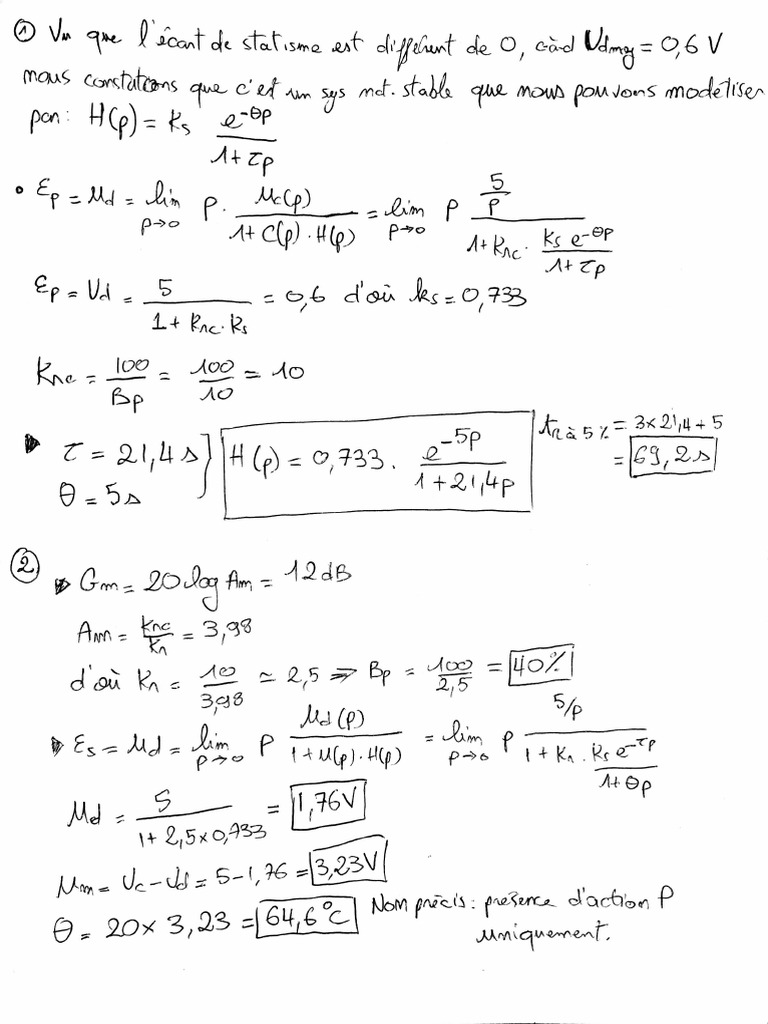 ① Vu que l'écart de statisme est différent de 0, càd Udmoy = 0,6 V
nous constatons que c'est un sys nat. stable que nous pouvons modéliser
par : H(p) = Ks e^-θp / (1 + τp)
• Ep = Ud = lim p→0 P · Uc(p) / (1 + C(p) · H(p)) = lim p→0 P (5/P) / (1 + Krc · Ks e^-θp / (1 + τp))
Ep = Ud = 5 / (1 + Krc · Ks) = 0,6 d'où ks = 0,733
Krc = 100/Bp = 100/10 = 10
τ = 21,4 s } H(p) = 0,733 · e^-5p / (1 + 21,4p) tr à 5% = 3x21,4 + 5
θ = 5s = 69,2s
② Gm = 20 log Am = 12 dB
Am = Krc/Kr = 3,98
d'où Kr = 10/3,98 ≃ 2,5 ⇒ Bp = 100/2,5 = 40%
Es = Ud = lim p→0 P Ud(p) / (1 + U(p) · H(p)) = lim p→0 P (5/p) / (1 + Kr · Ks e^-τp / (1 + θp))
Ud = 5 / (1 + 2,5 x 0,733) = 1,76V
Um = Uc - Ud = 5 - 1,76 = 3,23V
θ = 20 x 3,23 = 64,6°C Non précis : présence d'action P
uniquement.